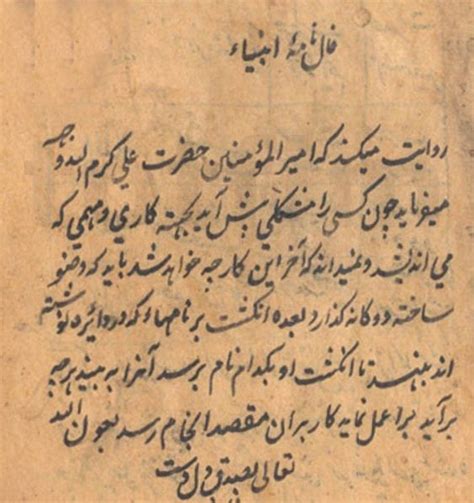 فال نامهٔ انبیاء
روایت میکند که امیر المؤمنین حضرت علی کرم الله وجهه
میفرماید چون کسی را مشکلی پیش آید بجهته کاری و مهمی که
می اندیشد و نمیداند که آخر این کار چه خواهد شد باید که وضو
ساخته دوکانه گذارد بعده انکشت بر نامهاء که در دائره نوشته
اند بنهد تا انکشت او بکدام نام برسد آنرا به بیند هر چه
برآید برا عمل نماید کار بران مقصد انجام رسد بعون الله
تعالی بصدق دل